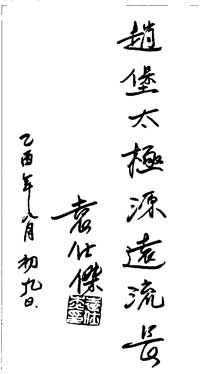 趙堡太極源遠流長
袁仕傑
乙酉年八月初九日